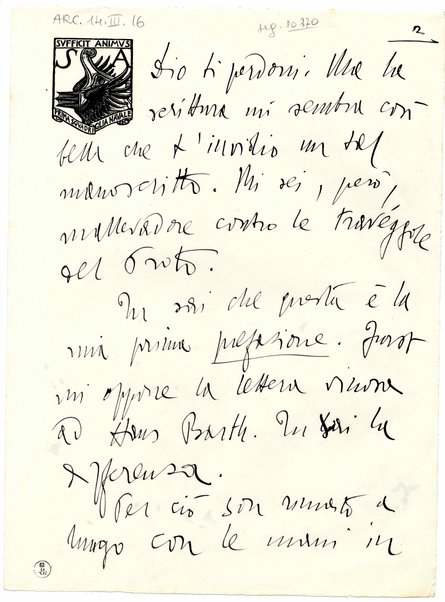 ARC. 14. III. 16
2
SVFFICIT ANIMVS
S A
PRIMA SQVADRIGLIA NAVALE
Dio ti perdoni. Ma la
scrittura mi sembra così
bella che t'invidio un tal
manoscritto. Mi sei, però,
mallevadore contro le travéggole
del Proto.
Tu sai che questa è la
mia prima prefazione.
mi oppone la lettera
ad Hans Barth. Tu sai la
differenza.
Per ciò son rimasto a
lungo con le mani in